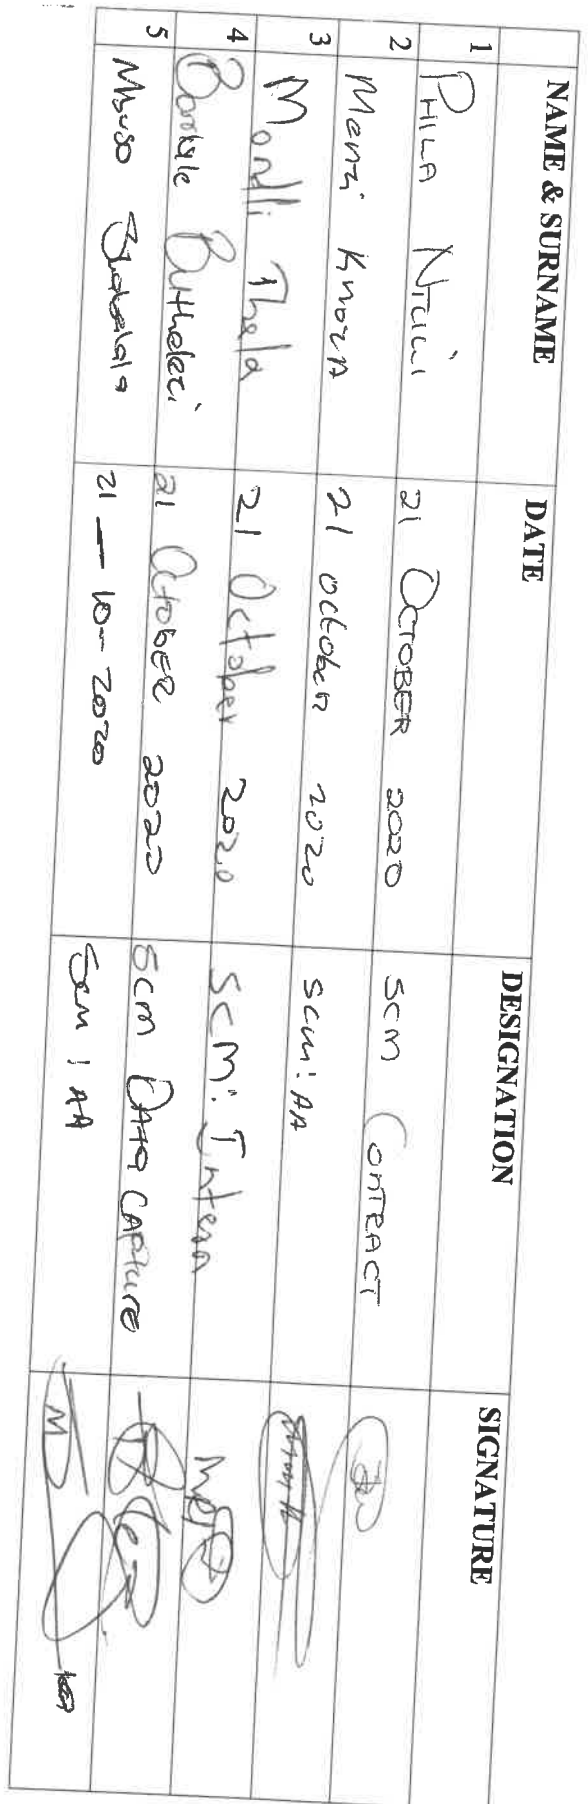 NAME & SURNAME DATE DESIGNATION SIGNATURE
1 PHILA 21 OCTOBER 2020 SCM CONTRACT
2 Manzi 21 October 2020 SCM: AA
3 Mondli Thela 21 October 2020 SCM: Intern
4 Buthelezi 21 October 2020 SCM DATA CAPTURE
5 21 - 10 - 2020 SCM : AA